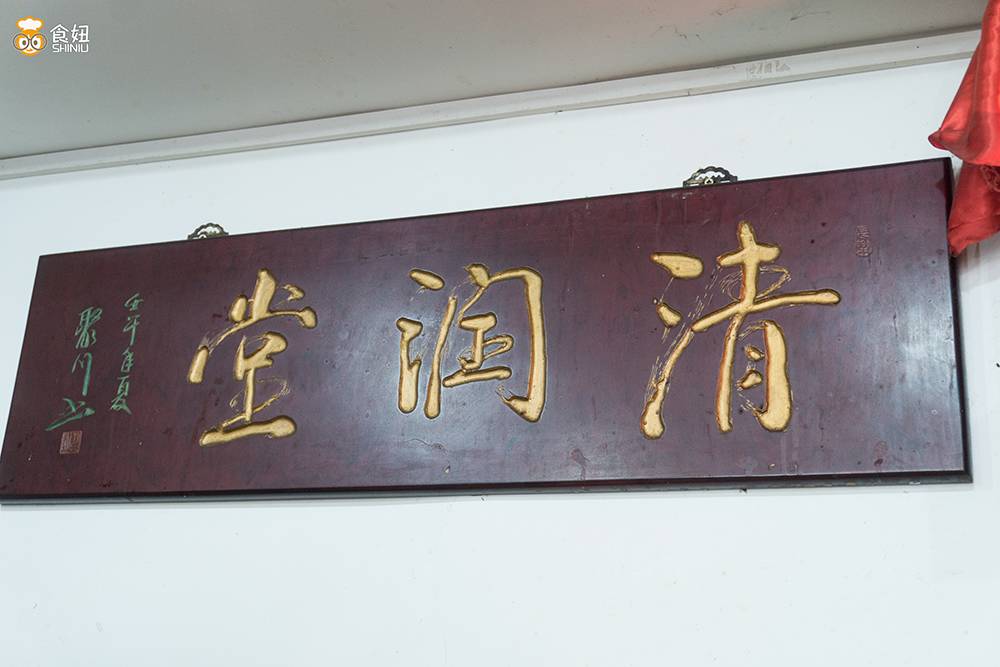 食妞
SHINIU
清润堂
壬午年夏
聚川书